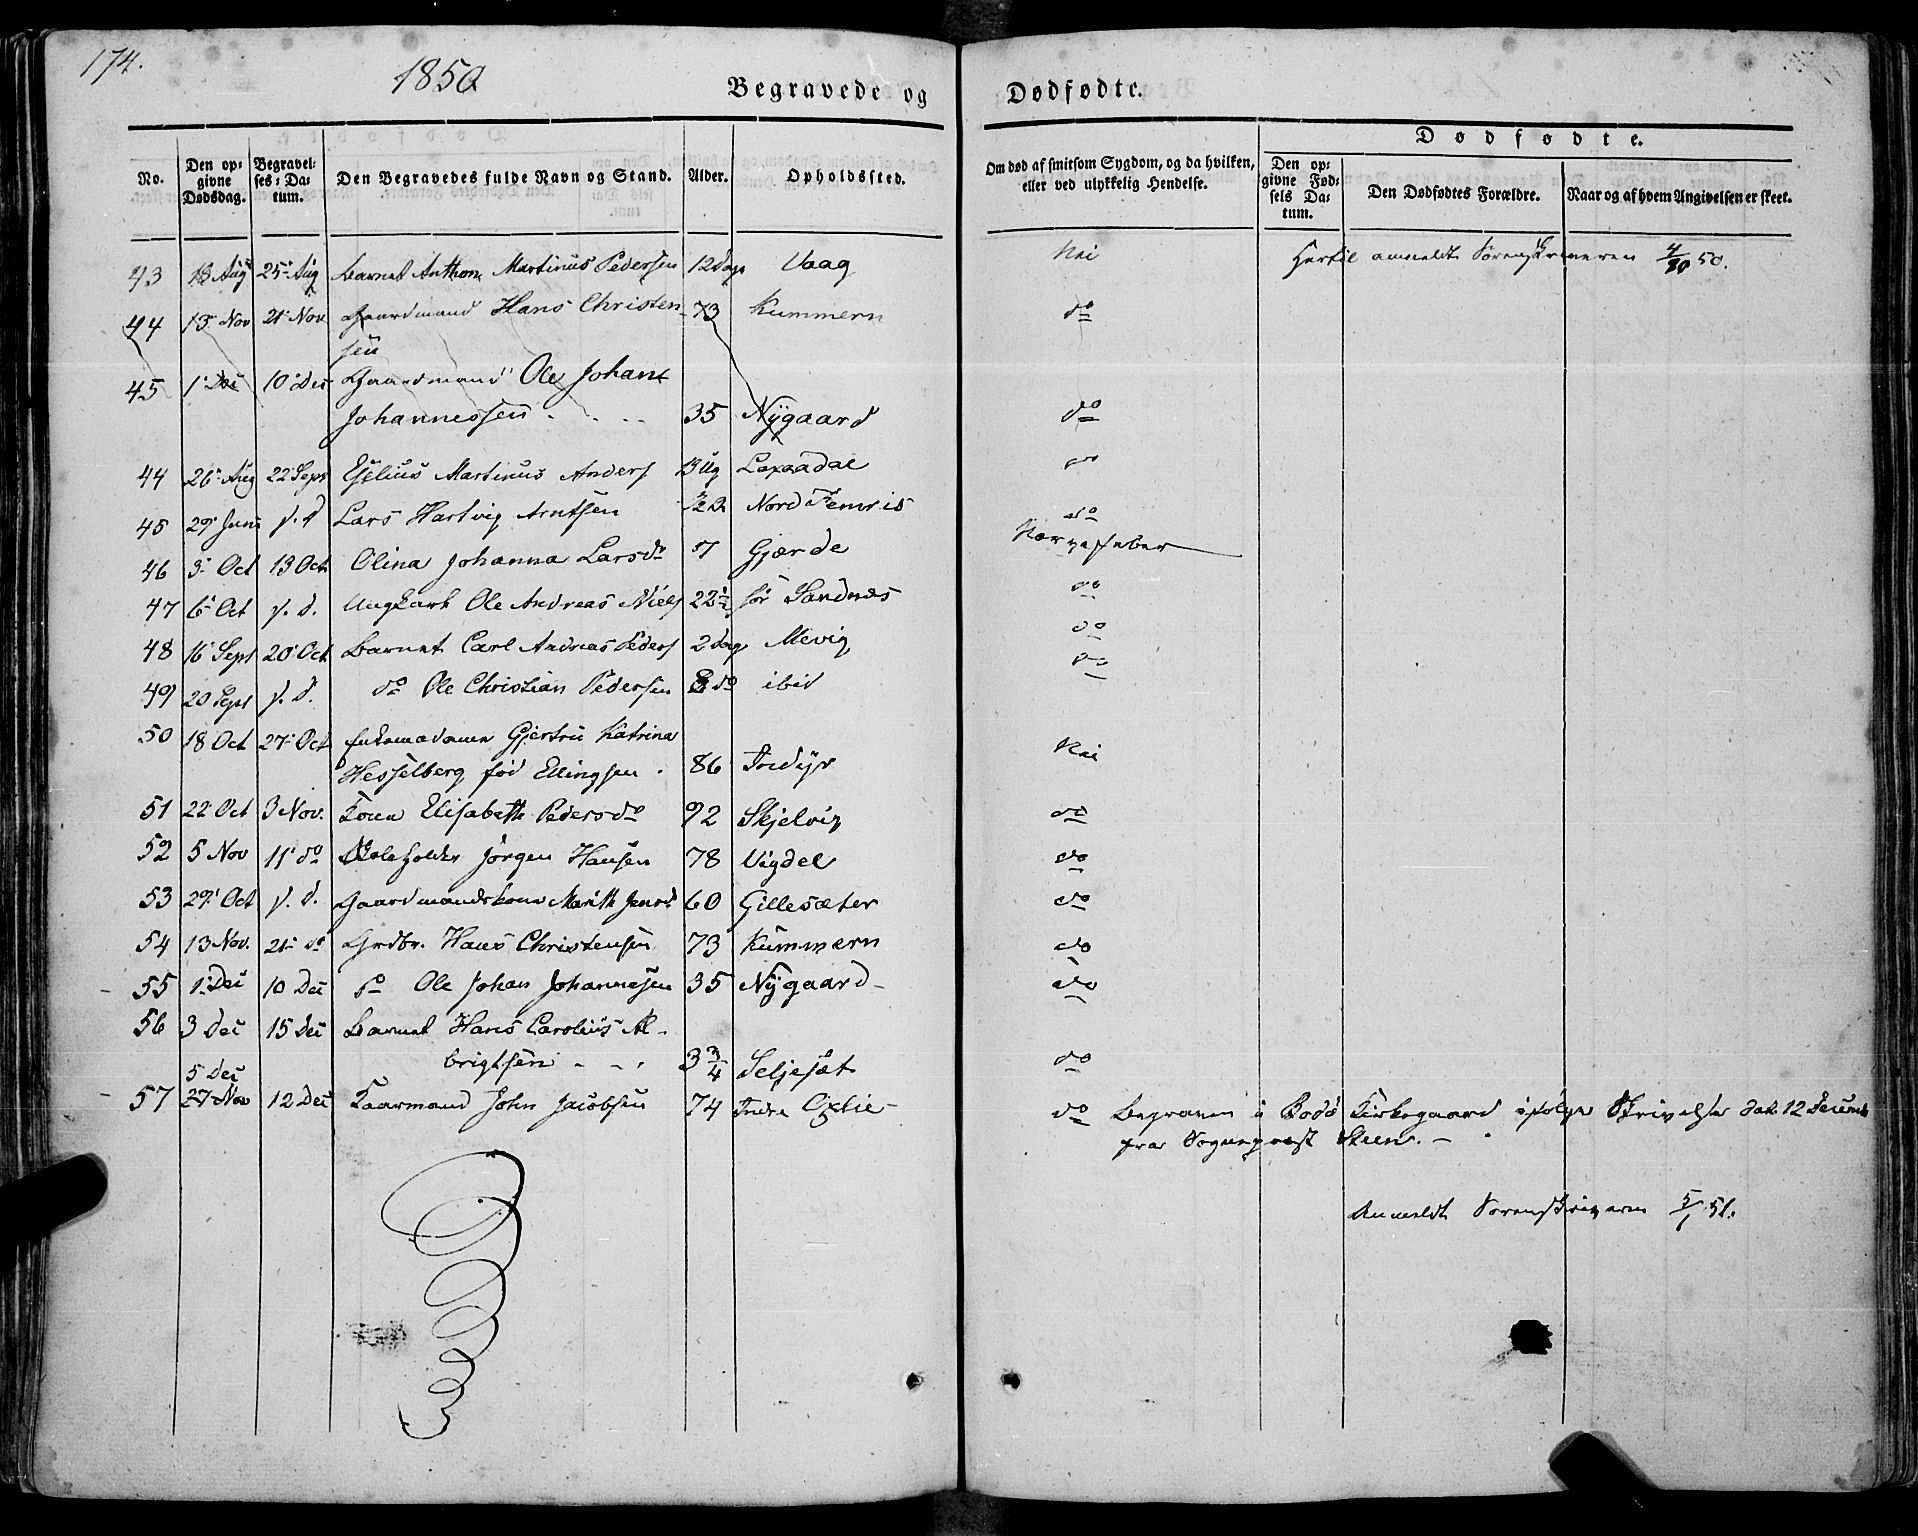 174.
1850
Begravede og Dødfødte.
No.
Den opgivne Dødsdag.
Begravelses-Datum.
Den Begravedes fulde Navn og Stand.
Alder.
Opholdssted.
Om død af smitsom Sygdom, og da hvilken, eller ved ulykkelig Hendelse.
Dødfødte.
Den opgivne Fødsels Datum.
Den Dødfødtes Forældre.
Naar og af hvem Angivelsen er skeet.
43 18 Aug 25 Aug Barnet Anthon Martinus Pedersen 12 Dage Vaag Nei Hertil anmeldt Sorenskriveren 4/10 50.
44 13 Nov 21 Nov Gaardmand Hans Christen- 73 Kummern do
sen
45 1 Dec 10 Dec Gaardmand Ole Johan
Johannessen 35 Nÿgaard do
44 26 Aug 22 Sept Martinus Anders 3 Ug do
45 29 Juni s. d. Lars Hartvig Arntsen Nord do
46 3 Oct 13 Oct Olina Johanna Larsdr 7 Gjærde Nervefeber
47 6 Oct s. d. Ungkarl Ole Andreas Niels 22 1/2 sör Sandnæs do
48 16 Sept 20 Oct Barnet Carl Andreas Peders 2 Dage Mevig do
49 20 Sept s. d. do Ole Christian Pedersen 8 do ibid do
50 18 Oct 27 Oct Enkemadame Gjertru Katrina
Hesselberg fød Ellingsen 86 Indÿr Nei
51 22 Oct 3 Nov. Konen Elisabeth Pedersdr 92 Skjelvig do
52 5 Nov 11 do Skoleholder Jörgen Hansen 78 Vigdel do
53 29 Oct s. d. Gaardmandskone Marith Jensd 60 Gillesæter do
54 13 Nov. 21 do Grdbr. Hans Christensen 73 Kummern do
55 1 Dec 10 Dec do Ole Johan Johannesen 35 Nÿgaard do
56 3 Dec 15 Dec Barnet Hans Carolius Al-
brigtsen 3 3/4 Seljesæt do
5 Dec
57 27 Nov 12 Dec Kaarmand John Jacobsen 74 Indre do Begraven i Bodö Kirkegaard ifølge Skrivelse dat. 12 Decemb
fra Sognepræst Steen.
Anmeldt Sorenskriveren 5/1 51.